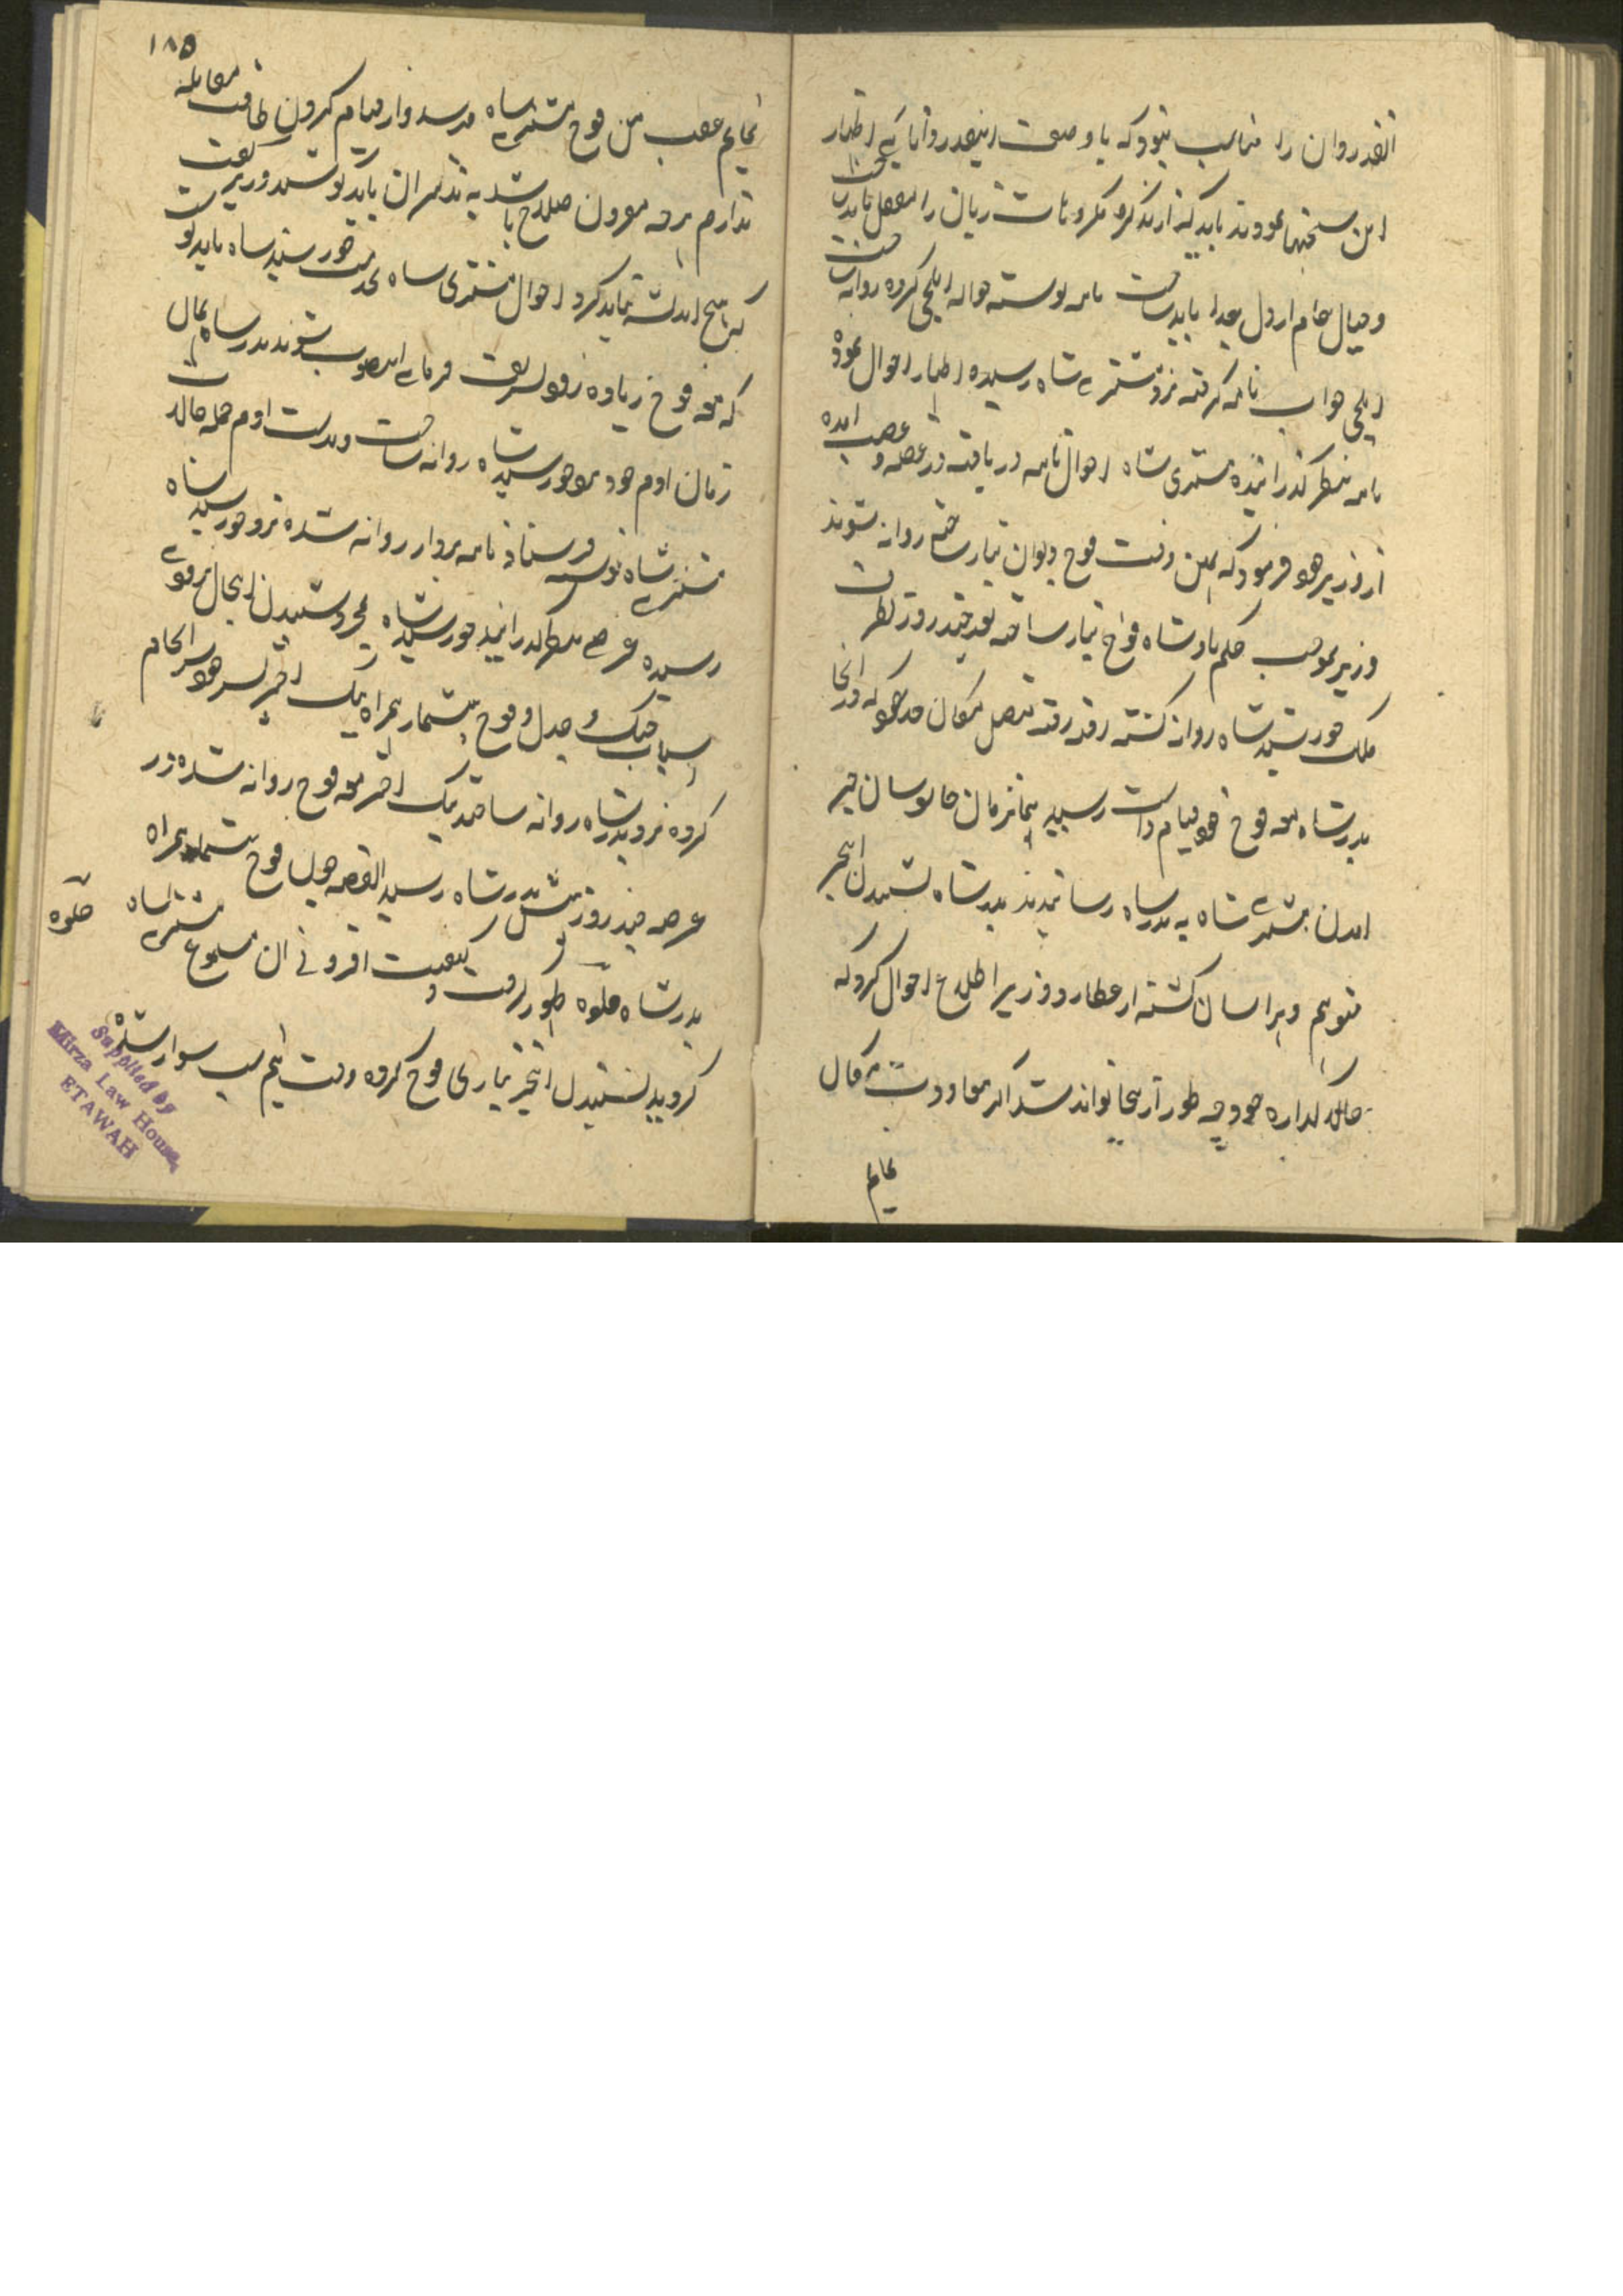 انقدر وان را مناسب نبود که با وصف اینقدر وانائی اظهار
این سخنها نمودند باید که از ند کرو مکرو ناشت زبان را
و خیال خام از دل بعدا باید ساخت نامه نوشته حواله ایلچی کرده روانه ساخت
ایلچی جواب نامه گرفته نزد مشتری شاه رسیده اظهار احوال نموده
نامه بنظر گذرانیده مشتری شاه احوال نامه دریافته در غصه و غضب امده
از وزیر خود فرمود که همین وقت فوج دیوان تیار ساخته روانه شوند
وزیر بموجب حکم بادشاه فوج تیار ساخته بعد چند روز بطرف
ملک خورشید شاه روانه گشته رفته رفته متصل مکان در انجا
بدر شاه معه فوج خود قیام داشت رسید همانزمان جاسوسان خبر
امدن مشتری شاه به بدر شاه رسانیدند بدر شاه بشنیدن اینخبر
متوهم و هراسان گشته از عطارد وزیر اطلاع احوال کرد که
حالا اداره خود چه طور آر سجا تواند شد اگر معاودت مکان
نمایم
۱۸۵
نمایم عقب من فوج مشتری شاه میرسد و از قیام کردن طاقت مقابله
ندارم هرچه مقرون صلاح باشد به تدبیر ان باید کوشید وزیر گفت
که هیچ اندیشه نباید کرد احوال مشتری شاه بخدمت خورشید شاه باید نوشت
که معه فوج زیاده رونق شریف فرمای اینصوب شوند بدر شاه همان
زمان ادم خود بخورشید شاه روانه ساخت و بدست ادم جمله حالت
مشتری شاه نوشته فرستاد نامه بردار روانه شده نزد خورشید شاه
رسیده عرضی بنظر گذرانید خورشید شاه بمجرد شنیدن اینحال
اسباب جنگ و جدل و فوج بیشمار همراه نیک اختر پسر خود سرانجام
کرده نزد بدر شاه روانه ساختند نیک اختر معه فوج روانه شده در
عرصه چند روز پیش بدر شاه رسید القصه چون فوج بیشمار همراه
بدر شاه جلوه ظهور گرفت و کیفیت افزونی ان مسموع مشتری شاه
جلوه
گردید بشنیدن اینخبر تیاری فوج کرده وقت نیم شب سوار شده
Supplied by
Mirza Law House,
ETAWAH